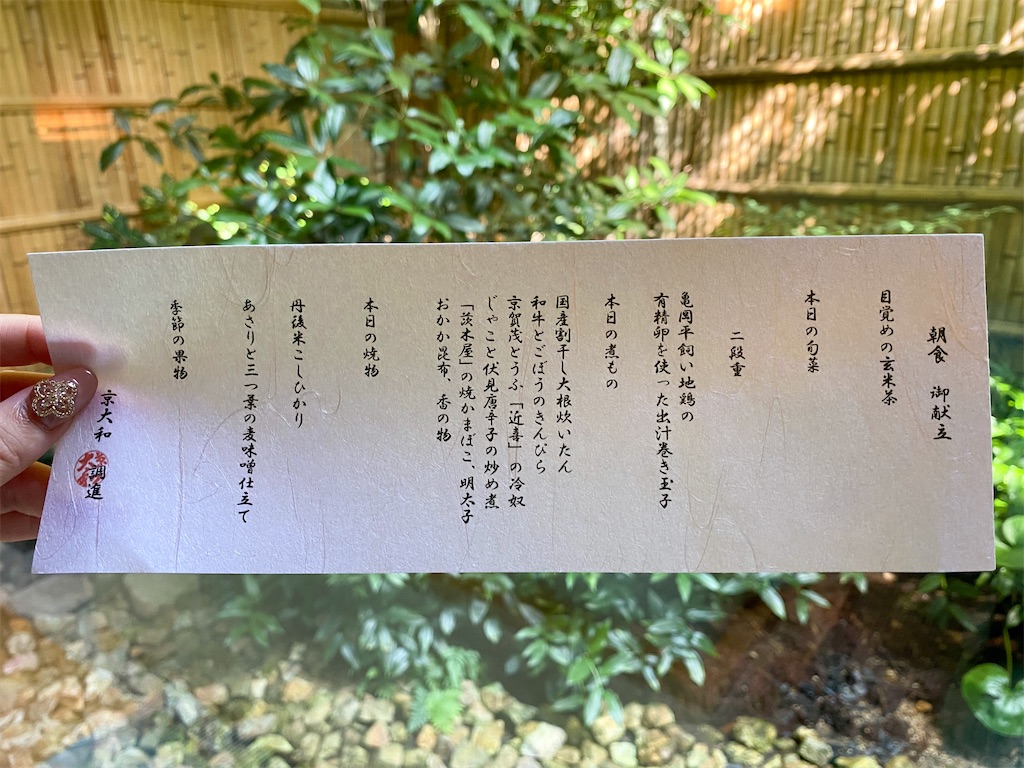 朝食　御献立
目覚めの玄米茶
本日の旬菜
二段重
亀岡平飼い地鶏の
有精卵を使った出汁巻き玉子
本日の煮もの
国産割干し大根炊いたん
和牛とごぼうのきんぴら
京賀茂とうふ「近喜」の冷奴
じゃこと伏見唐辛子の炒め煮
「茨木屋」の焼かまぼこ、明太子
おかか昆布、香の物
本日の焼物
丹後米こしひかり
あさりと三つ葉の麦味噌仕立て
季節の果物
京大和　調進